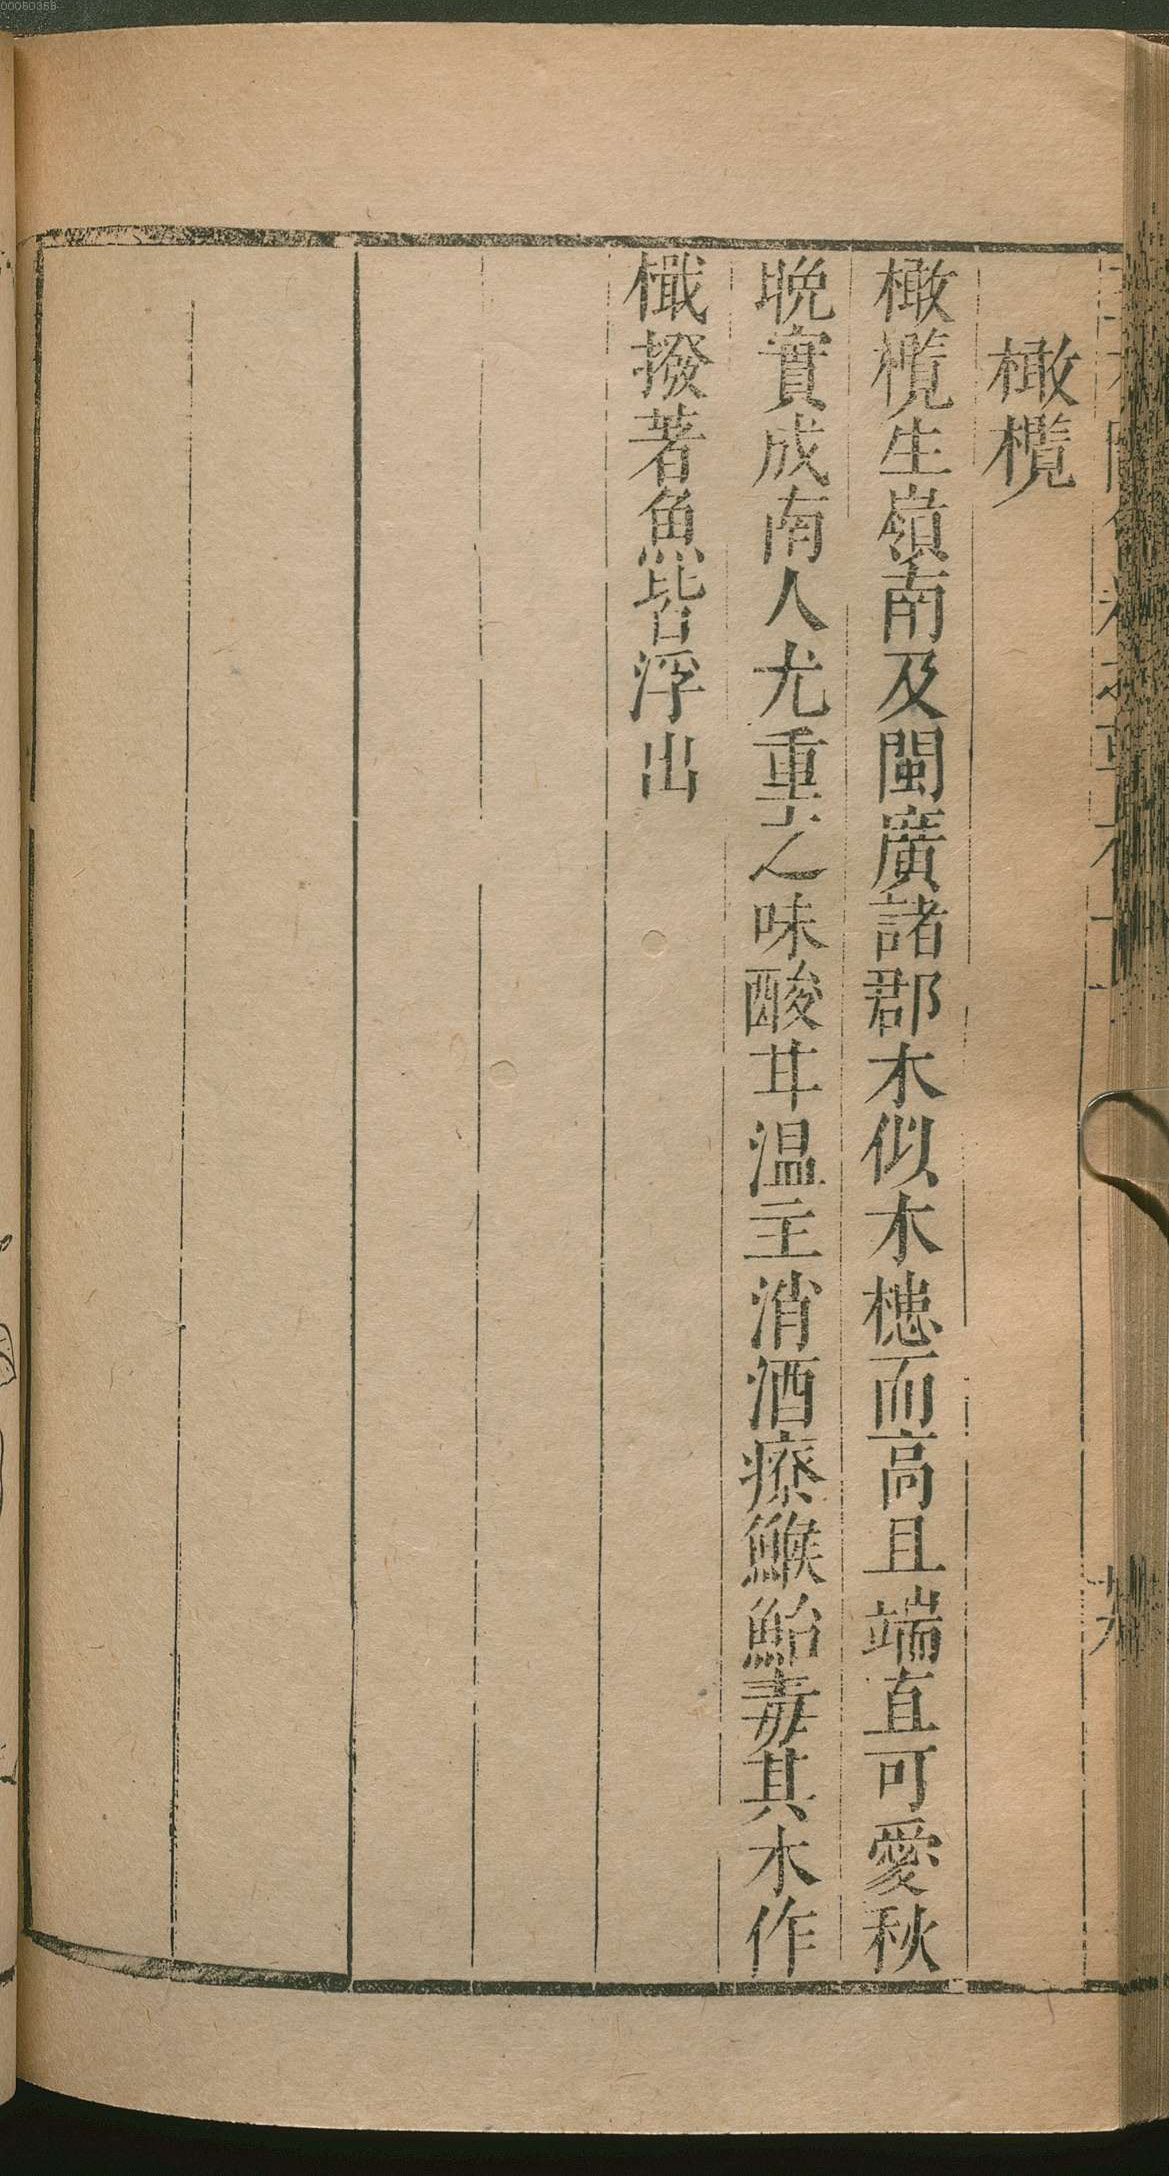 橄欖
橄欖生嶺南及閩廣諸郡木似木槵而高且端直可愛秋
晚實成南人尤重之味酸甘温主消酒療鯸鮐毒其木作
檝撥著魚皆浮出
00060358